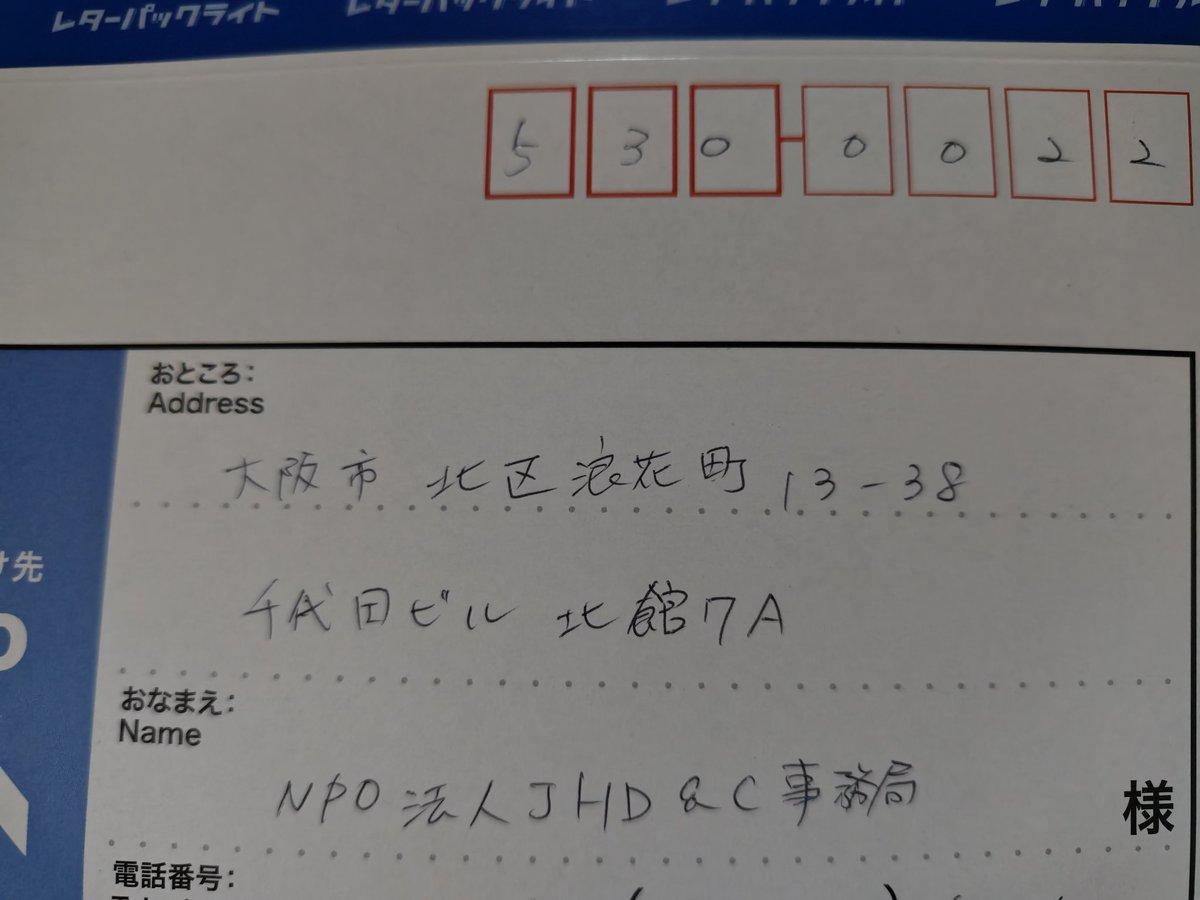 レターパックライト レターパックライト
530-0022
おところ:
Address
大阪市 北区浪花町 13-38
千代田ビル 北館7A
け先
おなまえ:
Name
NPO法人JHD&C事務局
様
電話番号: